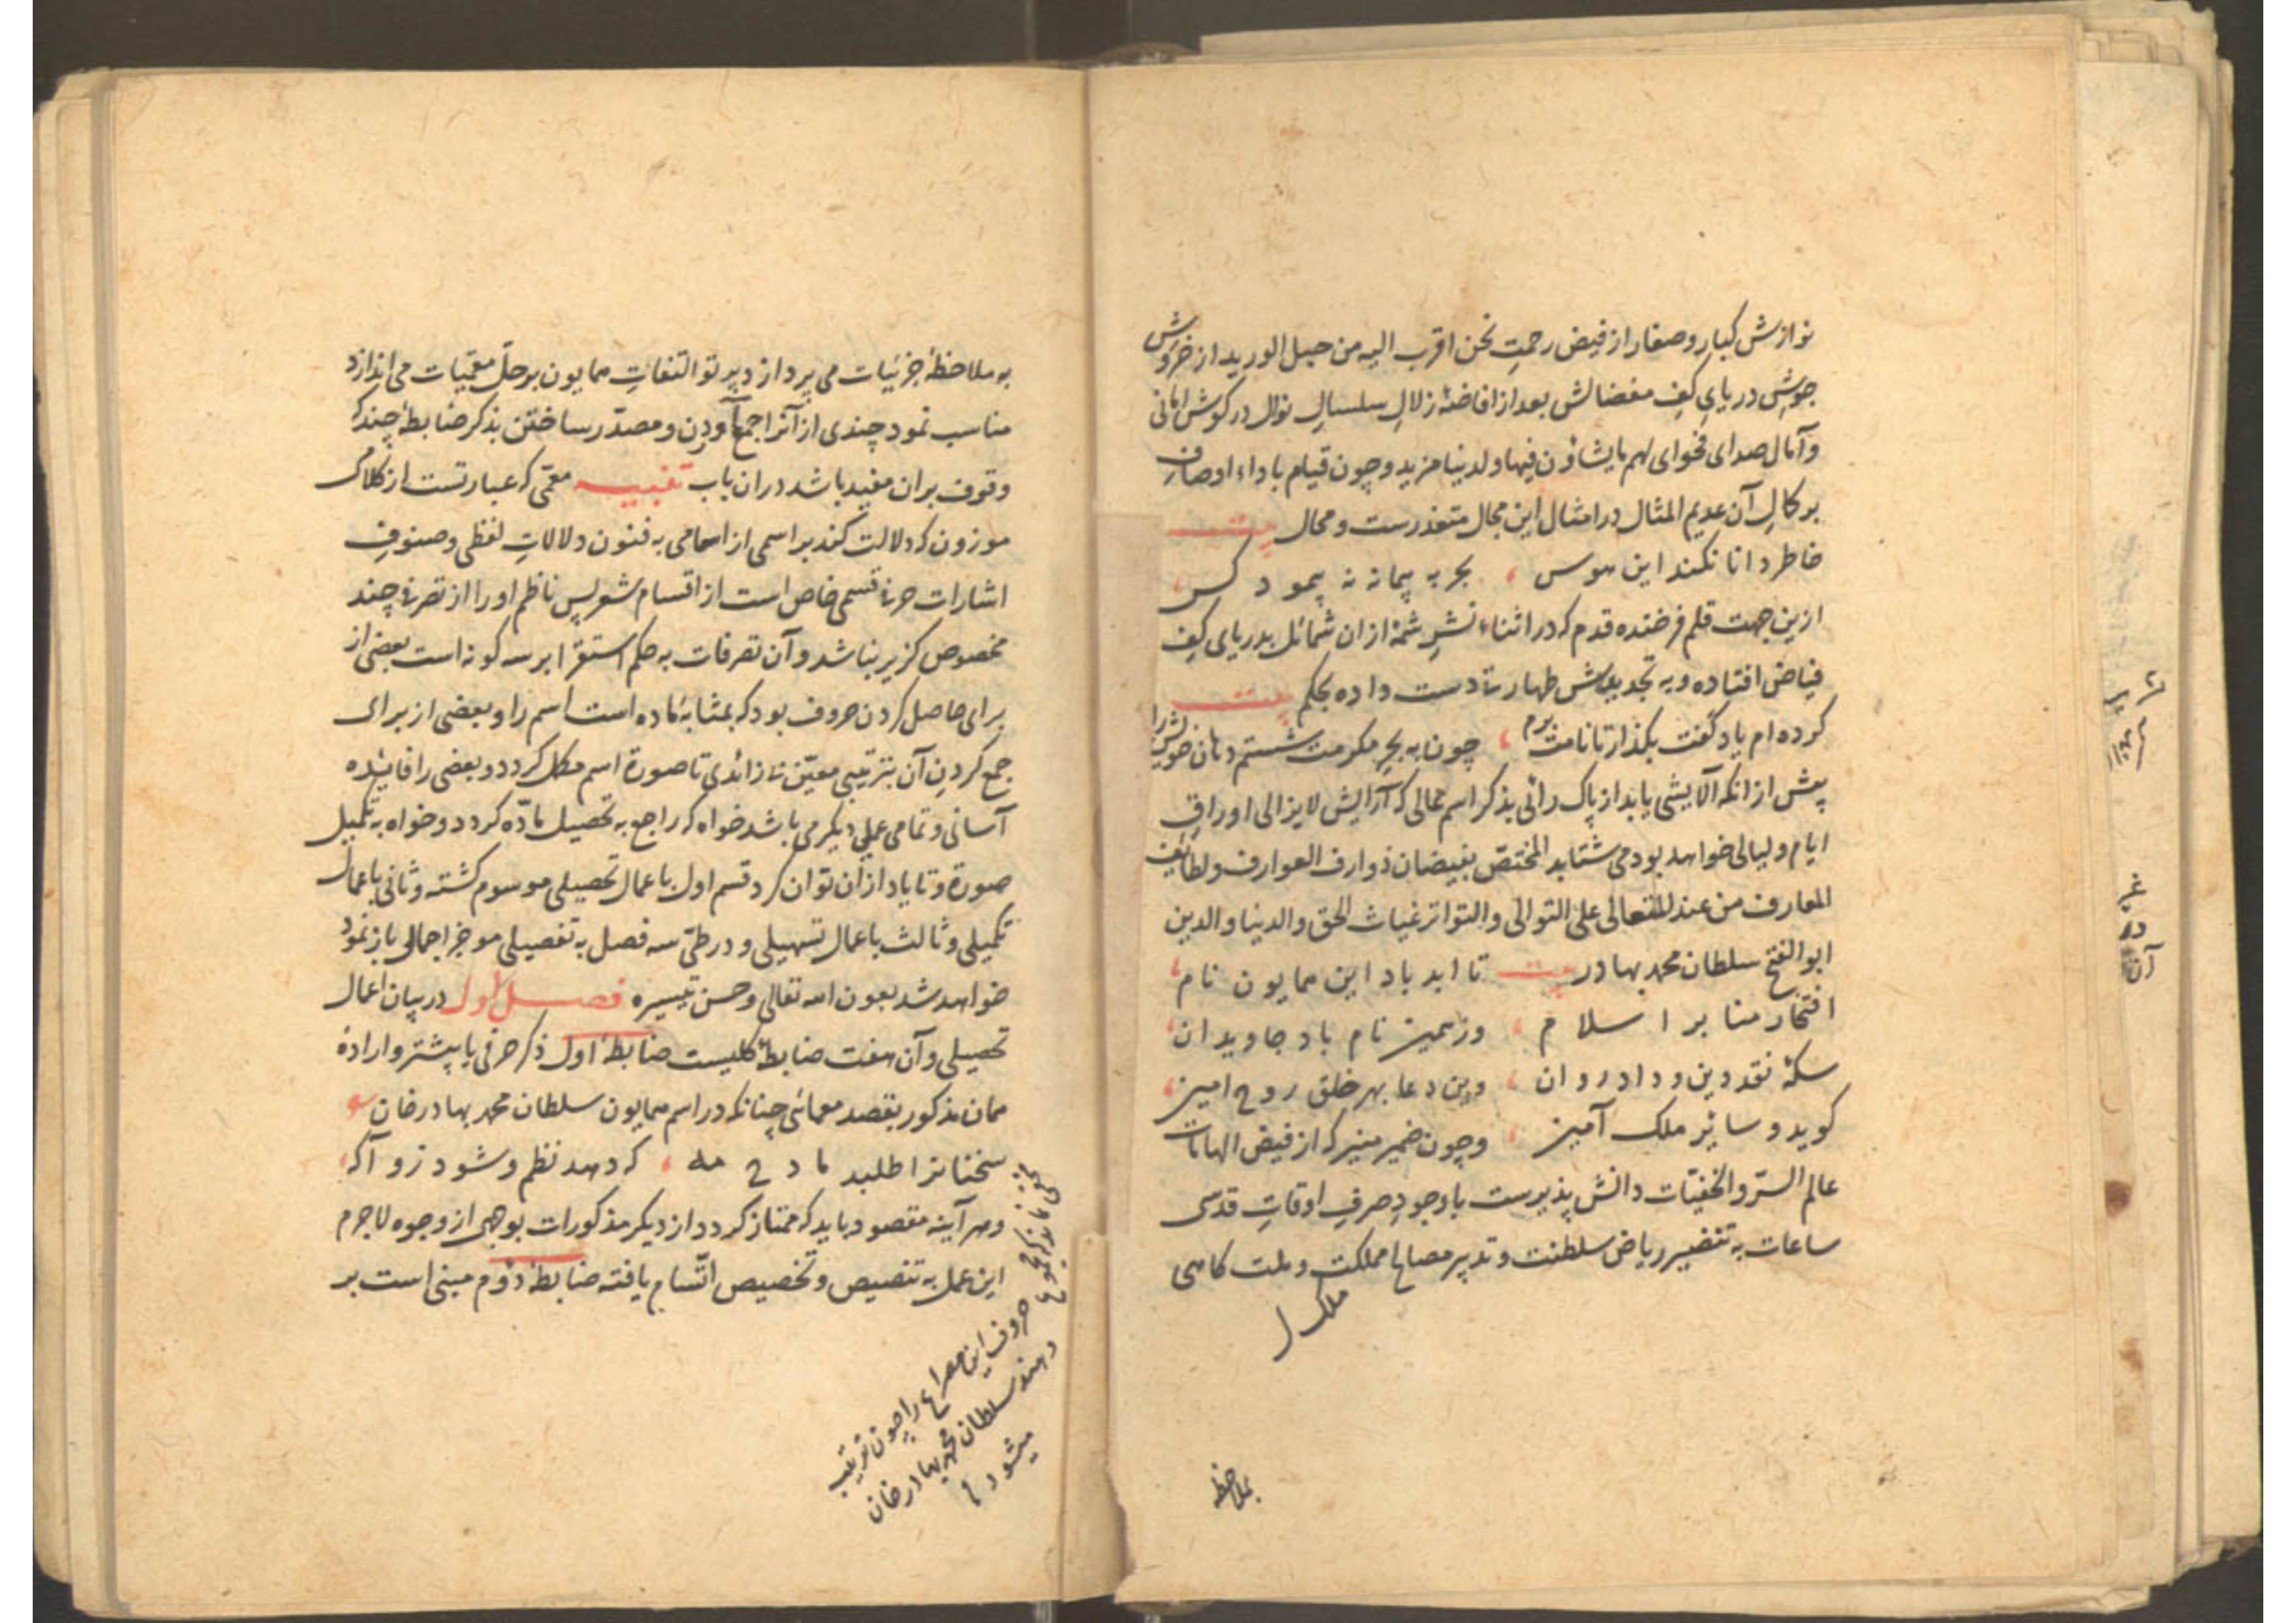 نوازش کبار و صغار از فیض رحمتِ نحن اقرب الیه من حبل الورید از خروش
جوشِ دریایِ کفِ مفضالش بعد از افاضهٔ زلالِ سلسالِ نوال در کوش امانی
و آمال صدای فحوای لهم مایشاؤن فیها و لدینا مزید و چون قیام باداء اوصاف
بر کمالِ آن عدیم المثال در امثال این مجال متعذرست و محال بیت
خاطر دانا نکند این هوس ، بحر به پیمانه نه پیمود کس ،
ازین جهت قلم فرخنده قدم که در اثناء نشرِ شمهٔ ازان شمائل بدریای کفِ
فیاض افتاده و به تجدیدش طهارتی دست داده بحکم بیت
کرده ام یاد کفت بکذار تا نامت برم ، چون به بحرِ مکرمت شستم دهان خویش را
پیش از انکه آلایشی یابد از پاک رائی بذکر اسم همالی که آرایش لایزالی اوراقِ
ایام و لیالی خواهد بود می شتابد المختصّ بفیضان ذوارف العوارف و لطائف
المعارف من عند الله تعالی علی التوالی و التواتر غیاث الحق و الدنیا و الدین
ابو الفتح سلطان محمد بهادر بیت تا ابد باد این همایون نام ،
افتخار منابر اسلام ، وز همین نام باد جاویدان ،
سکهٔ نقد دین و داد روان ، وین دعا بهر خلق روح امین ،
کوید و سایر ملک آمین ، و چون ضمیر منیر که از فیض الهامات
عالم السّر و الخفیّات دانش پذیرست با وجودِ صرفِ اوقاتِ قدسی
ساعات به تنضیر ریاض سلطنت و تدبیر مصالح مملکت و ملت کاهی
بملاحظه
به ملاحظهٔ جزئیات می پردازد و پرتو التفاتِ همایون بر حلّ معمّیات می اندازد
مناسب نمود چندی از آنرا جمع آوردن و مصدّر ساختن بذکر ضابطهٔ چند که
وقوف بران مفید باشد دران باب تنبیه معمّی که عبارتست از کلام
موزون که دلالت کند بر اسمی از اسامی به فنون دلالاتِ لفظی و صنوفِ
اشارات حرفی قسمی خاص است از اقسام شعر پس ناظم او را از تصرفی چند
مخصوص کزیر نباشد و آن تصرفات به حکم استقرا بر سه کونه است بعضی از
برای حاصل کردن حروف بود که بمثابهٔ ماده است اسم را و بعضی از برای
جمع کردنِ آن بترتیبی معیّن نازائدی تا صورة اسم مکمل کردد و بعضی را فایده
آسانی و تمامی عملی دیکر می باشد خواه که راجع به تحصیل مادّه کردد و خواه به تکمیل
صورة و تا یاد ازان توان کرد قسم اول باعمال تحصیلی موسوم کشته و ثانی باعمال
تکمیلی و ثالث باعمال تسهیلی و در طیّ سه فصل به تفصیلی موجز اجمالی باز نمود
خواهد شد بعون الله تعالی و حسن تیسیره فصل اول در بیان اعمال
تحصیلی و آن هفت ضابطهٔ کلیست ضابطهٔ اول ذکر حرفی یا بیشتر و ارادهٔ
همان مذکور بقصد معمائی چنانکه در اسم همایون سلطان محمد بهادر خان
سخنانرا طلبد مادح مه ، که دهد نظم و شود زو آکه ،
و هر آینه مقصود باید که ممتاز کردد از دیکر مذکورات بوجهی از وجوه لاجرم
این عمل به تنصیص و تخصیص اتّسام یافته ضابطهٔ دوّم مبنی است بر
حروف این مصراع را چون ترتیب
دهند سلطان محمد بهادر خان
میشود